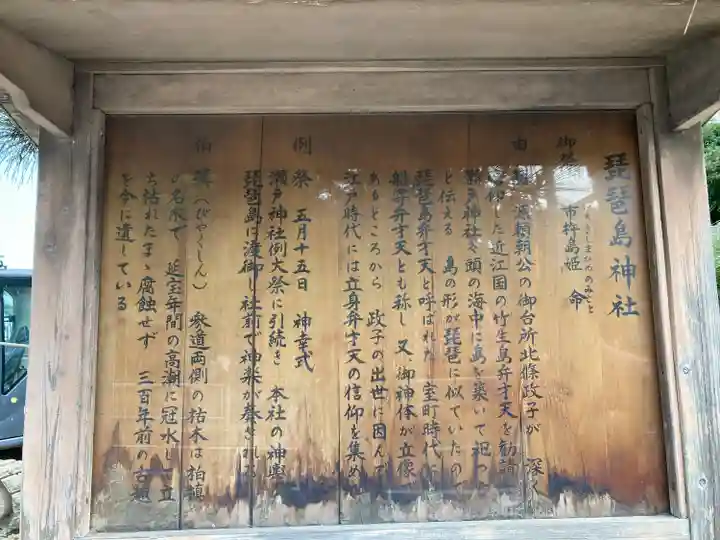 琵琶島神社
御祭 市杵島姫 命
いちきしまひめのみこと
由 源頼朝公の御台所北條政子が 深く
信仰した近江国の竹生島弁才天を勧請
瀬戸神社々頭の海中に島を築いて祀った
と伝える 島の形が琵琶に似ていたので
琵琶島弁才天と呼ばれた 室町時代に
船寄弁才天とも称し 又、御神体が立像
あるところから 政子の出世に因んで
江戸時代には立身弁才天の信仰を集め
例 祭 五月十五日 神幸式
瀬戸神社例大祭に引続き 本社の神輿
琵琶島に渡御し社前で神楽が奏される
柏 槇(びやくしん) 参道両側の枯木は柏槇
の名木で 延宝年間の高潮に冠水し立
ち枯れたまゝ腐蝕せず 三百年前の古
を今に遺している